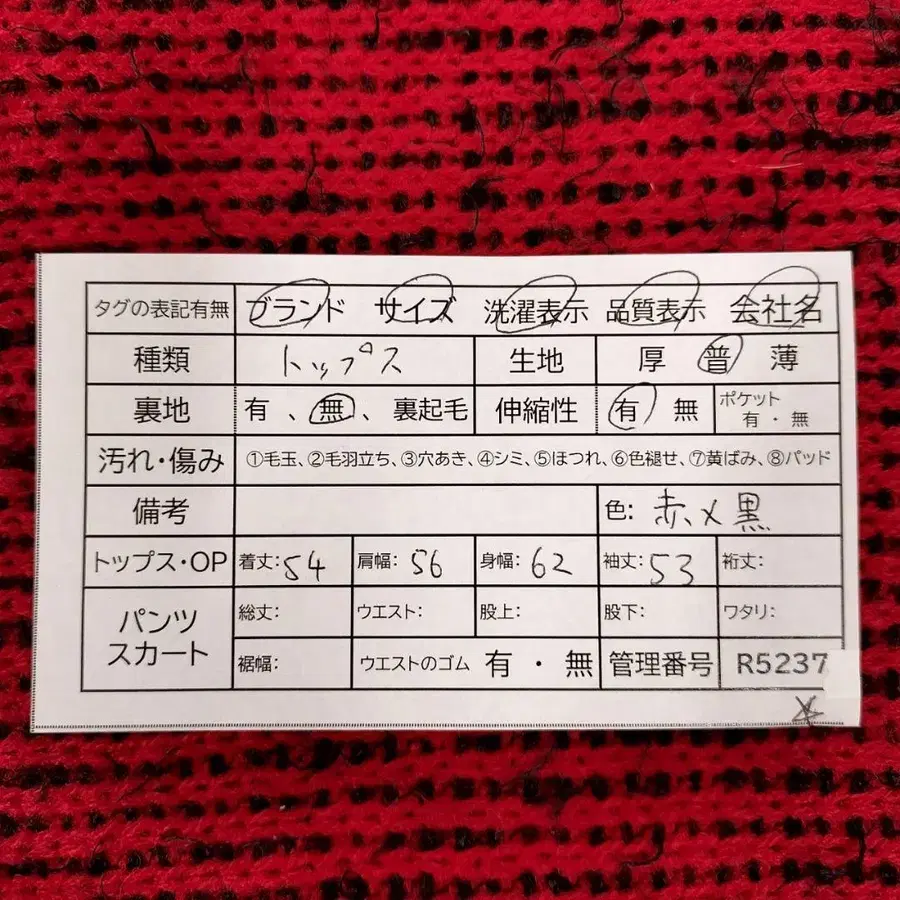 タグの表記有無 ブランド サイズ 洗濯表示 品質表示 会社名
種類 トップス 生地 厚 普 薄
裏地 有 、無、裏起毛 伸縮性 有 無 ポケット 有・無
汚れ・傷み ①毛玉、②毛羽立ち、③穴あき、④シミ、⑤ほつれ、⑥色褪せ、⑦黄ばみ、⑧パッド
備考 色: 赤×黒
トップス・OP 着丈:54 肩幅:56 身幅:62 袖丈:53 裄丈:
パンツ スカート 総丈: ウエスト: 股上: 股下: ワタリ:
裾幅: ウエストのゴム 有・無 管理番号 R5237